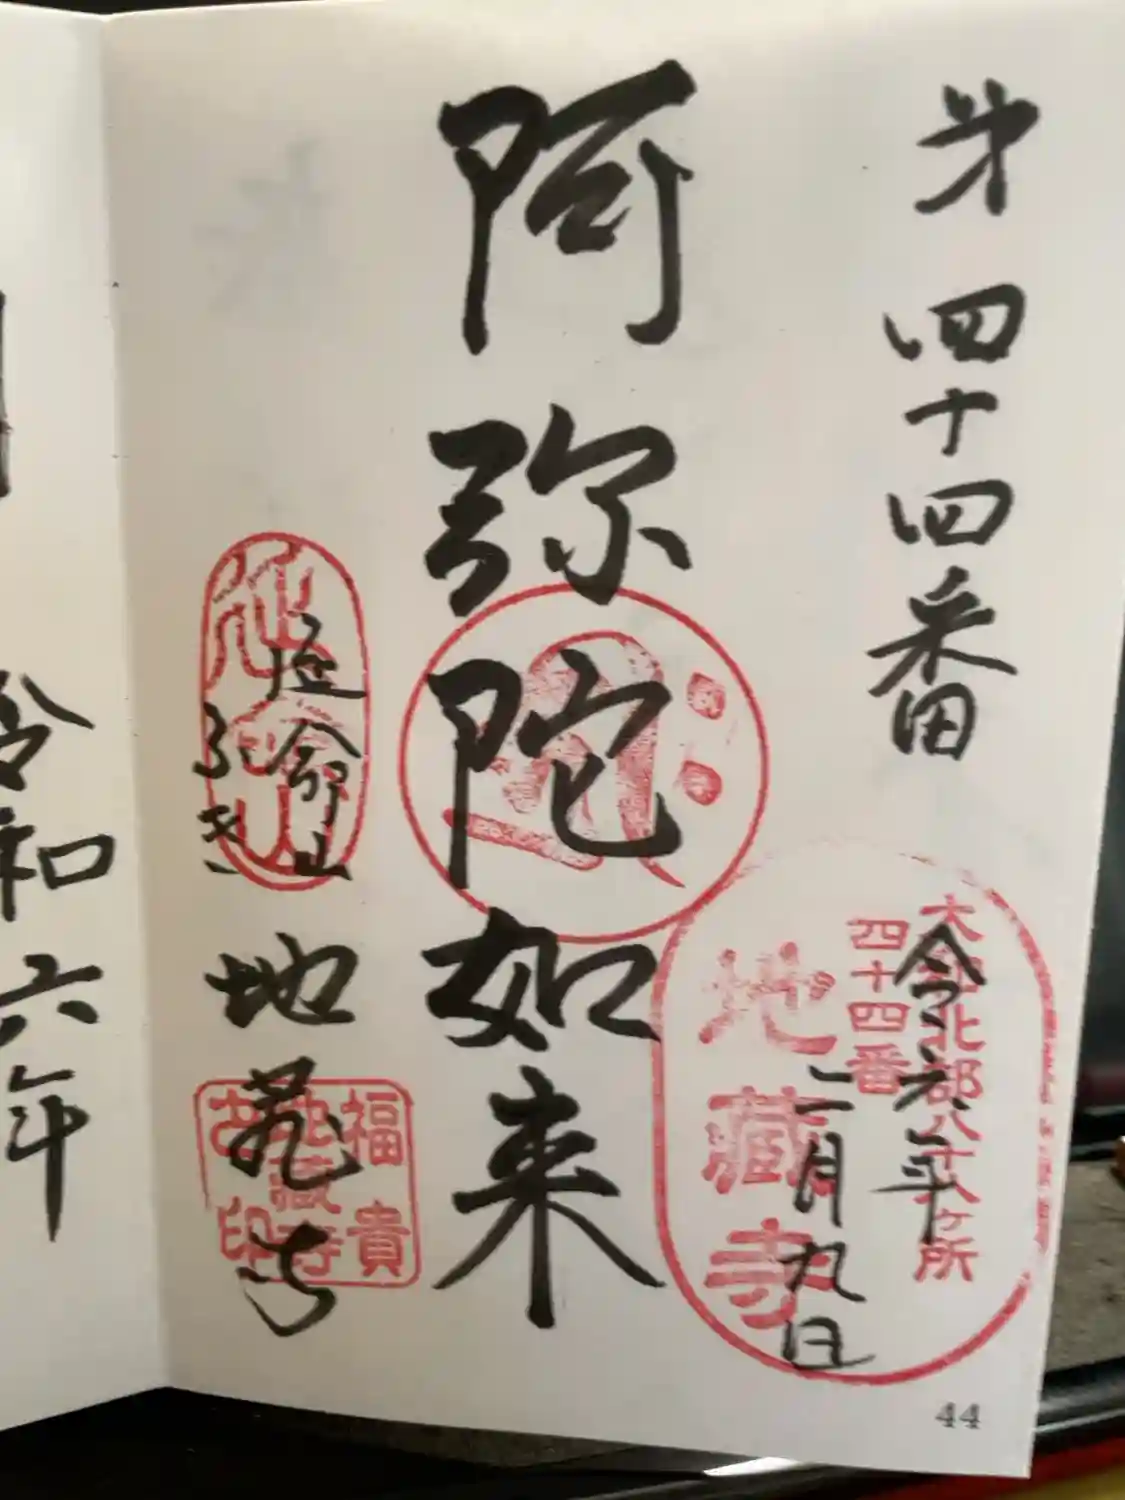 第四十四番
大和北部八十八ヶ所
四十四番
地蔵寺
令六年
二月九日
阿弥陀如来
延命山
ふき
地蔵寺
福貴
地蔵寺
印
44
令和六年